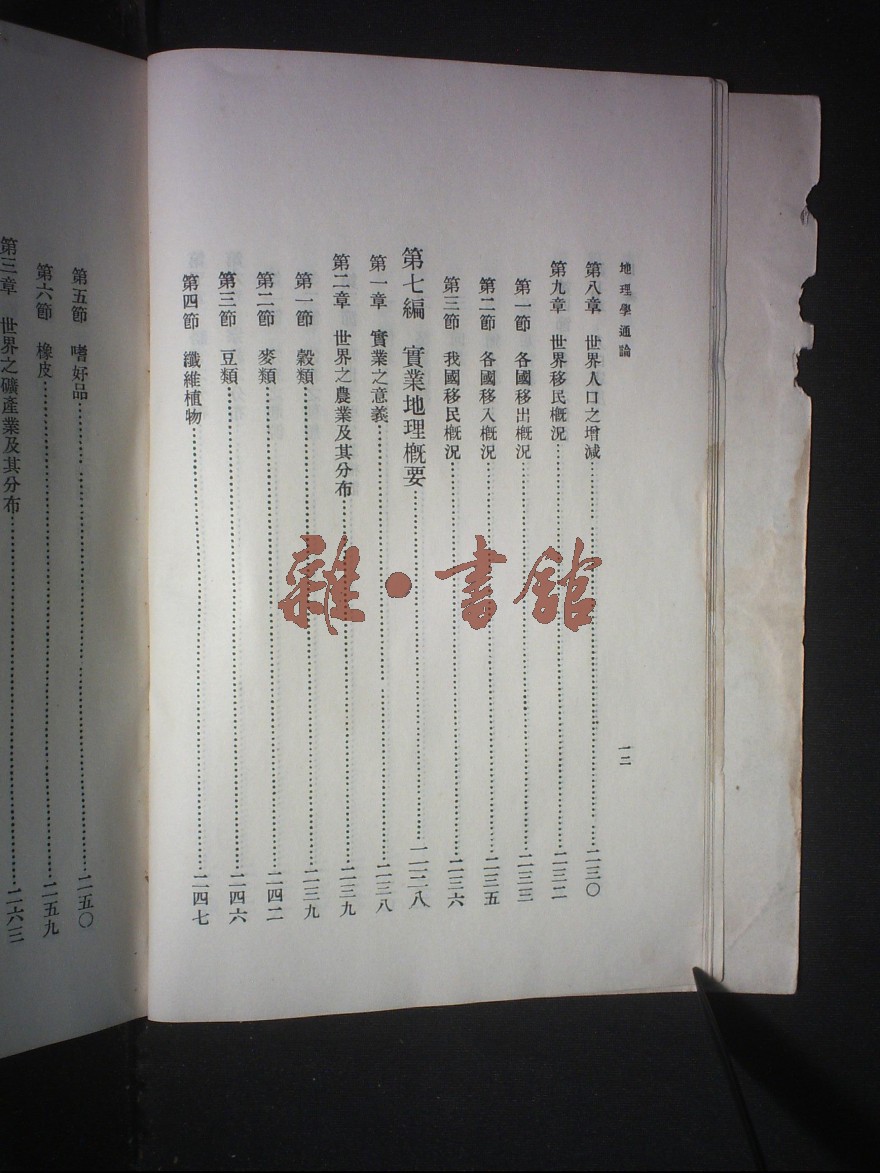 地理學通論
一二
第八章 世界人口之增減……二三〇
第九章 世界移民概況……二三二
第一節 各國移出概況……二三三
第二節 各國移入概況……二三五
第三節 我國移民概況……二三六
第七編 實業地理概要……二三八
第一章 實業之意義……二三八
第二章 世界之農業及其分布……二三九
第一節 穀類……二三九
第二節 麥類……二四二
第三節 豆類……二四六
第四節 纖維植物……二四七
第五節 嗜好品……二五〇
第六節 橡皮……二五九
第三章 世界之礦產業及其分布……二六三
雜·書館